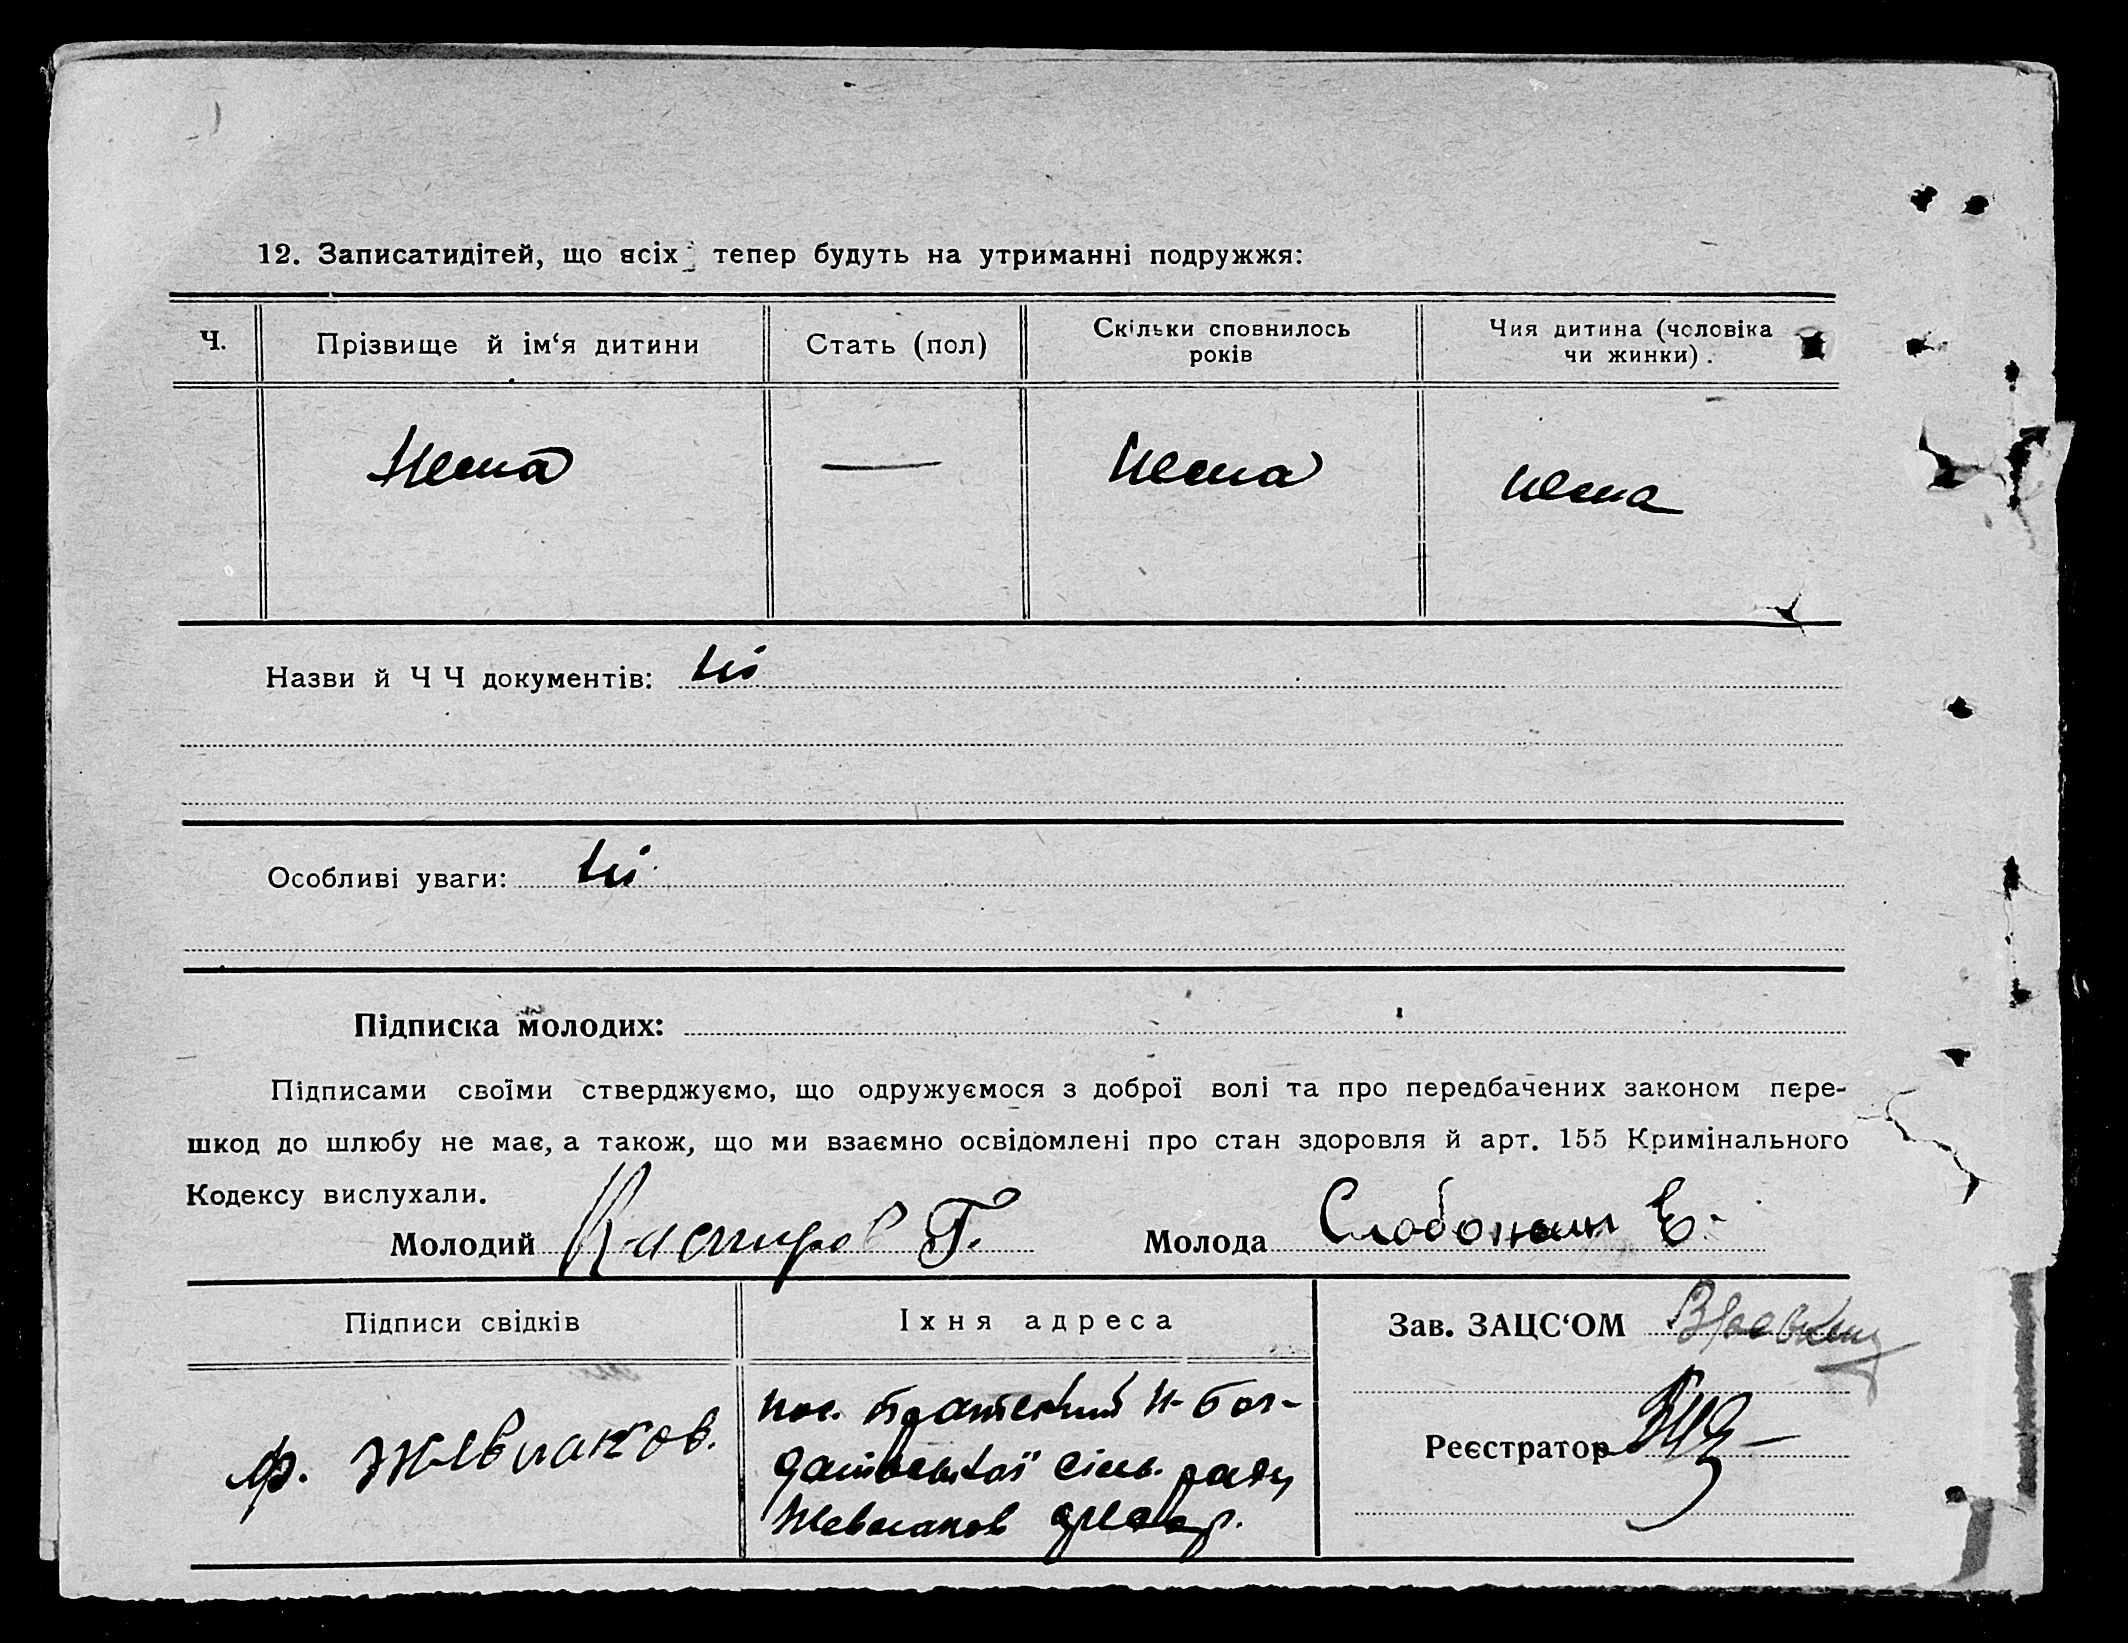 12. Записатидітей, що всіх тепер будуть на утриманні подружжя:
Ч.
Прізвище й ім‘я дитини
Стать (пол)
Скільки сповнилось
років
Чия дитина (чоловіка
чи жинки).
Нема
—
Нема
нема
Назви й Ч Ч документів: Ні
Особливі уваги: Ні
Підписка молодих:
Підписами своїми стверджуємо, що одружуємося з доброї волі та про передбачених законом пере-
шкод до шлюбу не має, а також, що ми взаємно освідомлені про стан здоровля й арт. 155 Кримінального
Кодексу вислухали.
Молодий Г.
Молода Е.
Підписи свідків
Їхня адреса
Зав. ЗАЦС‘ОМ
ф. жевлаков.
пос. Братський Н-Бог-
данівської сільради
Жевлаков
Реєстратор